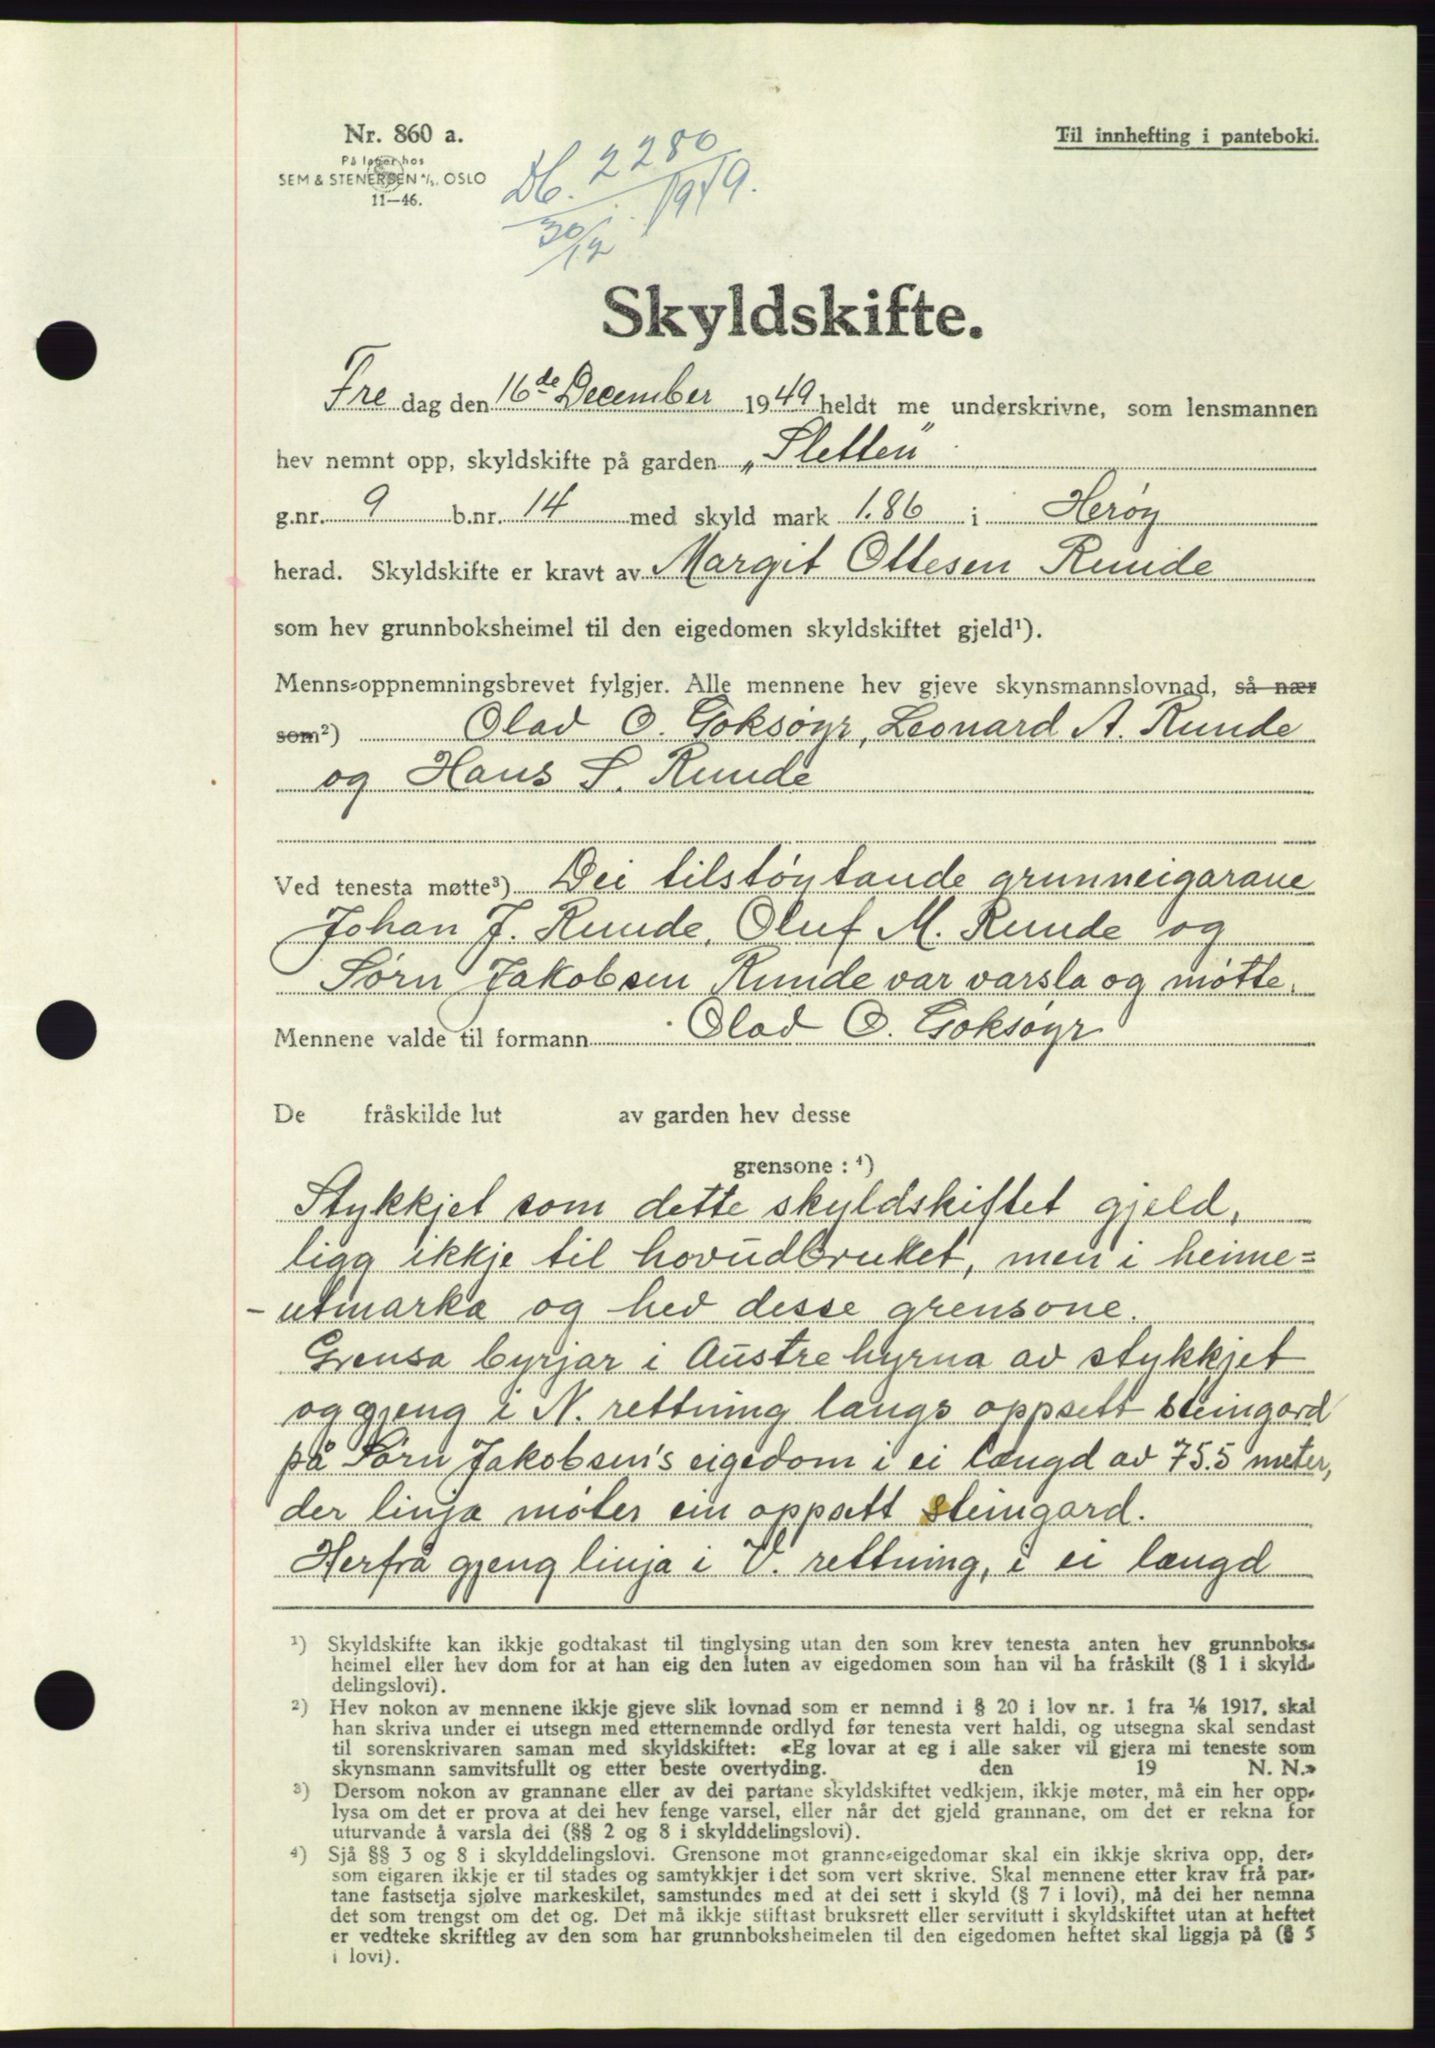 Nr. 860 a.
På lager hos
SEM & STENERSEN A/S. OSLO
11—46.
Til innhefting i panteboki.
Db. 2280/1949.
30/12
Skyldskifte.
Fredag den 16de December 1949 heldt me underskrivne, som lensmannen
hev nemnt opp, skyldskifte på garden „Sletten"
g.nr. 9 b.nr. 14 med skyld mark 1.86 i Herøy
herad. Skyldskifte er kravt av Margit Ottesen Runde
som hev grunnboksheimel til den eigedomen skyldskiftet gjeld¹).
Menns-oppnemningsbrevet fylgjer. Alle mennene hev gjeve skynsmannslovnad, så nær
som²) Olav O. Goksøyr, Leonard A. Runde
og Hans S. Runde
Ved tenesta møtte³) Dei tilstøytande grunneigarane
Johan J. Runde, Oluf M. Runde og
Sørn Jakobsen Runde var varsla og møtte.
Mennene valde til formann Olav O. Goksøyr
De fråskilde lut av garden hev desse
grensone: ⁴)
Stykkjet som dette skyldskiftet gjeld,
ligg ikkje til hovudbruket, men i heime=
-utmarka og hev desse grensone.
Grensa byrjar i Austre hyrna av stykkjet
og gjeng i N. rettning langs oppsett steingard
på Sørn Jakobsen's eigedom i ei længd av 75.5 meter,
der linja møter ein oppsett steingard.
Herfrå gjeng linja i V. rettning, i ei længd
¹) Skyldskifte kan ikkje godtakast til tinglysing utan den som krev tenesta anten hev grunnboks-
heimel eller hev dom for at han eig den luten av eigedomen som han vil ha fråskilt (§ 1 i skyld-
delingslovi).
²) Hev nokon av mennene ikkje gjeve slik lovnad som er nemnd i § 20 i lov nr. 1 fra 1/6 1917, skal
han skriva under ei utsegn med etternemnde ordlyd før tenesta vert haldi, og utsegna skal sendast
til sorenskrivaren saman med skyldskiftet: «Eg lovar at eg i alle saker vil gjera mi teneste som
skynsmann samvitsfullt og etter beste overtyding. den 19 N. N.»
³) Dersom nokon av grannane eller av dei partane skyldskiftet vedkjem, ikkje møter, må ein her opp-
lysa om det er prova at dei hev fenge varsel, eller når det gjeld grannane, om det er rekna for
uturvande å varsla dei (§§ 2 og 8 i skylddelingslovi).
⁴) Sjå §§ 3 og 8 i skylddelingslovi. Grensone mot granne-eigedomar skal ein ikkje skriva opp, der-
som eigaren ikkje er til stades og samtykkjer i det som vert skrive. Skal mennene etter krav frå par-
tane fastsetja sjølve markeskilet, samstundes med at dei sett i skyld (§ 7 i lovi), må dei her nemna
det som trengst om det og. Det må ikkje stiftast bruksrett eller servitutt i skyldskiftet utan at heftet
er vedteke skriftleg av den som har grunnboksheimelen til den eigedomen heftet skal liggja på (§ 5
i lovi).